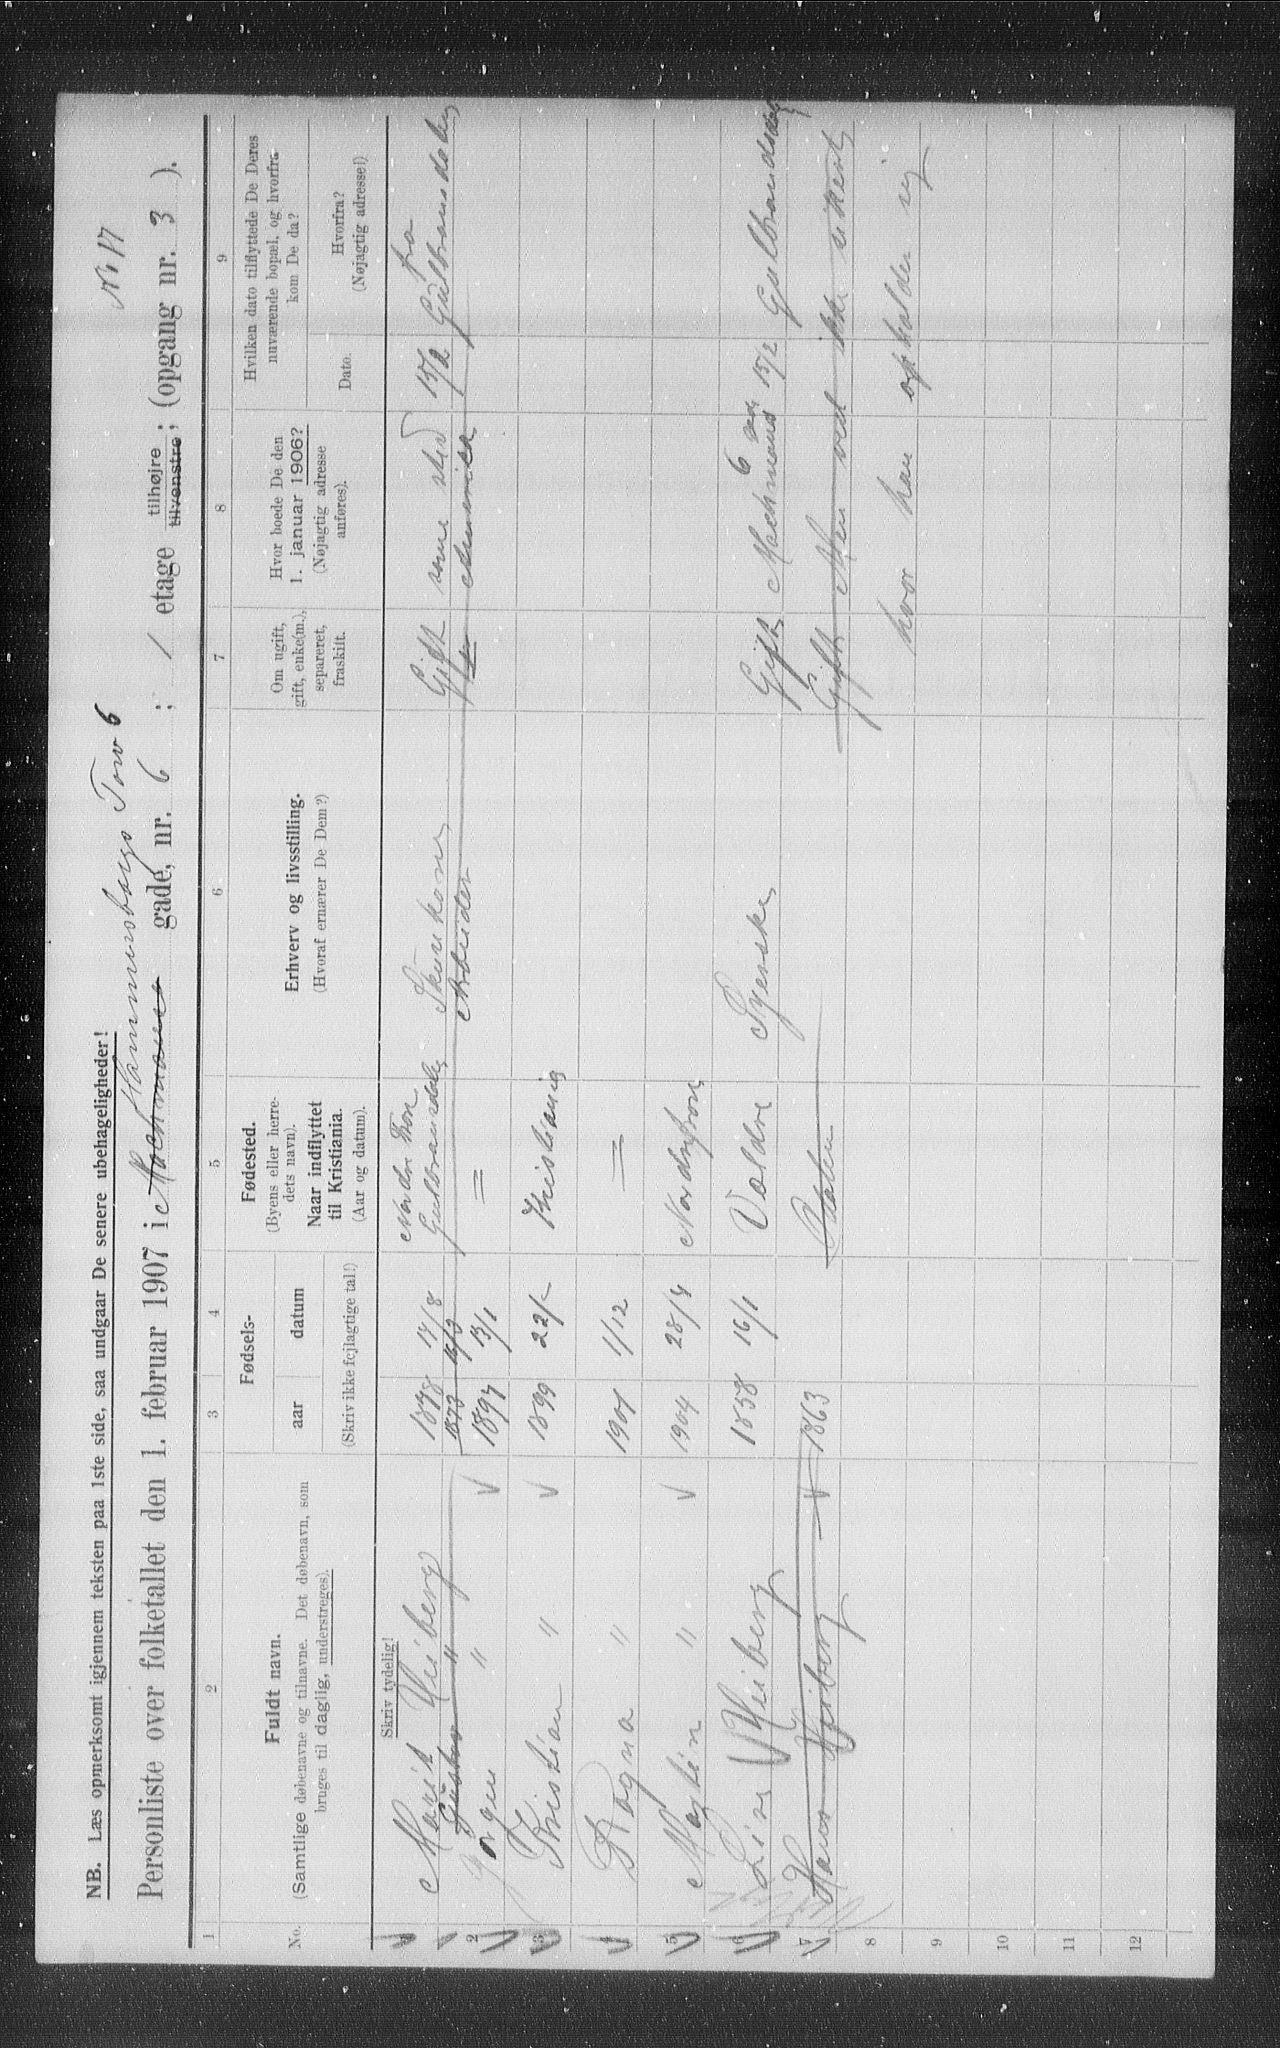 NB. Læs opmerksomt igjennem teksten paa 1ste side, saa undgaar De senere ubehageligheder!
No 17
Hammersborgs Torv 6
Personliste over folketallet den 1. februar 1907 i Machmanns gade, nr. 6 ; 1 etage tilhøjre tilvenstre; (opgang nr. 3 ).
1 2 3 4 5 6 7 8 9
No.
Fuldt navn.
(Samtlige døbenavne og tilnavne. Det døbenavn, som
bruges til daglig, understreges).
Fødsels-
aar datum
(Skriv ikke fejlagtige tal!)
Fødested.
(Byens eller herre-
dets navn).
Naar indflyttet
til Kristiania.
(Aar og datum).
Erhverv og livsstilling.
(Hvoraf ernærer De Dem?)
Om ugift,
gift, enke(m.),
separeret,
fraskilt.
Hvor boede De den
1. januar 1906?
(Nøjagtig adresse
anføres).
Hvilken dato tilflyttede De Deres
nuværende bopæl, og hvorfra
kom De da?
Dato.
Hvorfra?
(Nøjagtig adresse!)
Skriv tydelig!
1 Marit Wiiberg 1878 14/8 Nordre Fron Gulbrandsdalen Gift samme sted 15/2 fra Gulbransdalen
Gustav " 1873 16/3 Arbeider Amerika
2 Jørgen " 1897 13/1 =
3 Kristian " 1899 22/- Kristiania
4 Ragna " 1901 1/12 =
5 Martin " 1904 28/4 Nordrefron
6 Lina Wiiberg 1858 16/1 Valdre Syerske Gift Machmans 6 15/2 Gulbrandsdalen
7 Hans Wiiberg 1863 Gift Men ved ikke sikkert
8 hvor han opholder sig
9
10
11
12